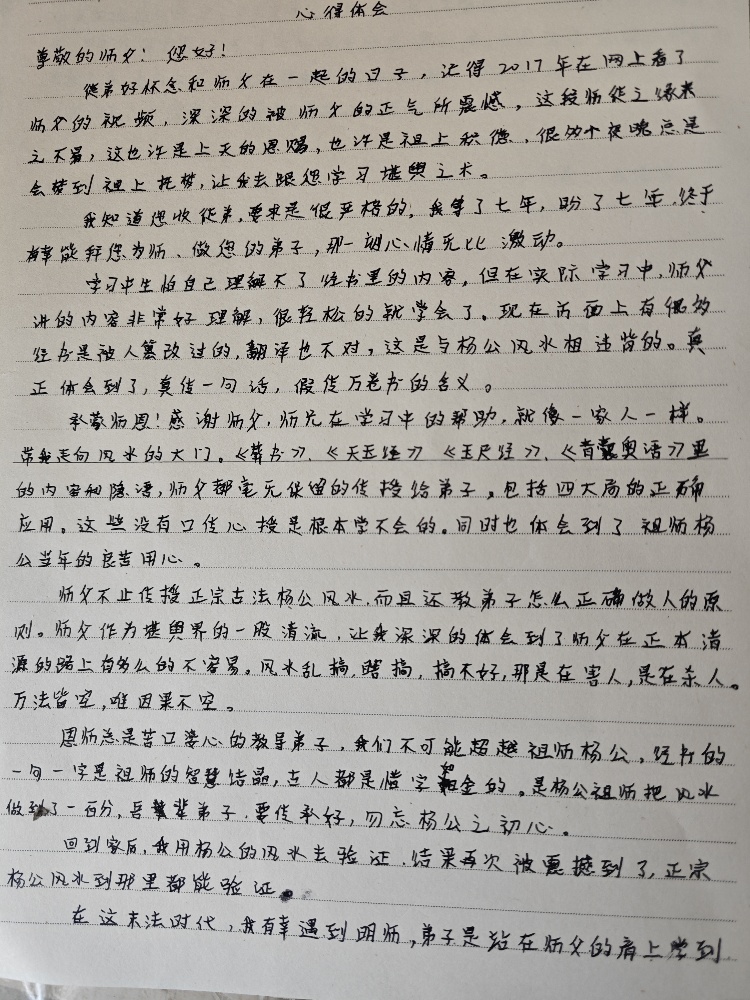 心得体会
尊敬的师父：您好！
徒弟好怀念和师父在一起的日子，记得2017年在网上看了
师父的视频，深深的被师父的正气所震憾，这段师徒之缘来
之不易，这也许是上天的恩赐，也许是祖上积德，很多个夜晚总是
会梦到祖上托梦，让我去跟您学习堪舆之术。
我知道您收徒弟，要求是很严格的，我等了七年，盼了七年，终于
有幸能拜您为师、做您的弟子，那一刻心情无比激动。
学习中生怕自己理解不了经书里的内容，但在实际学习中，师父
讲的内容非常好理解，很轻松的就学会了。现在市面上有很多
经书是被人篡改过的，翻译也不对，这是与杨公风水相违背的。真
正体会到了，真传一句话，假传万卷书的含义。
承蒙师恩！感谢师父，师兄在学习中的帮助，就像一家人一样。
带我走向风水的大门。《葬书》、《天玉经》《玉尺经》、《青囊奥语》里
的内容和隐语，师父都毫无保留的传授给弟子。包括四大局的正确
应用。这些没有口传心授是根本学不会的。同时也体会到了祖师杨
公当年的良苦用心。
师父不止传授正宗古法杨公风水，而且还教弟子怎么正确做人的原
则。师父作为堪舆界的一股清流，让我深深的体会到了师父在正本清
源的路上有多么的不容易。风水乱搞，瞎搞，搞不好，那是在害人，是在杀人。
万法皆空，唯因果不空。
恩师总是苦口婆心的教导弟子，我们不可能超越祖师杨公，经书的
一句一字是祖师的智慧结晶，古人都是惜字如金的。是杨公祖师把风水
做到了一百分，吾辈弟子，要传承好，勿忘杨公之初心。
回到家后，我用杨公的风水去验证，结果再次被震撼到了，正宗
杨公风水到那里都能验证。
在这末法时代，我有幸遇到明师，弟子是站在师父的肩上学到